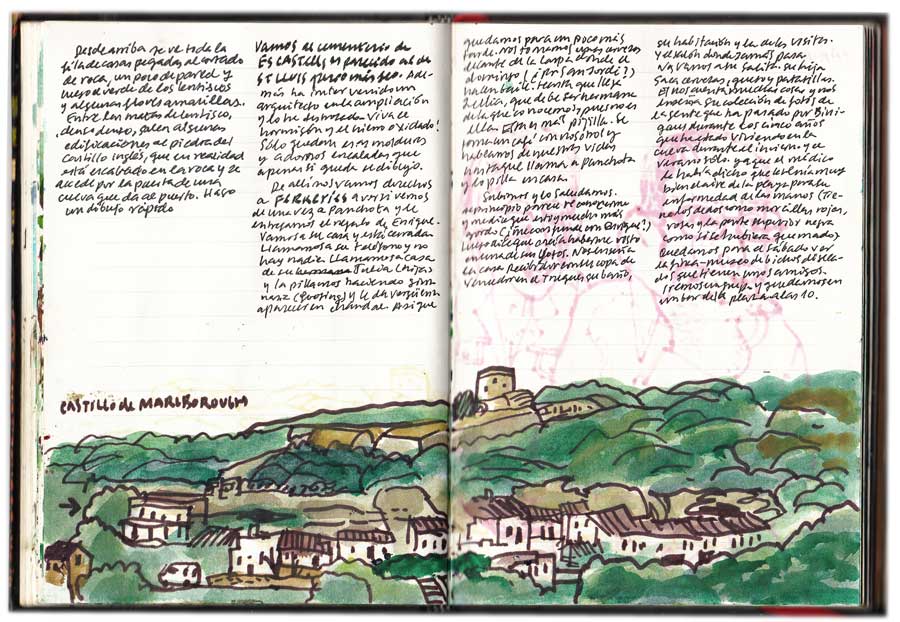 Desde arriba se ve toda la
fila de casas pegadas al cortado
de roca, un poco de pared y
luego el verde de los lentiscos
y algunas flores amarillas.
Entre las matas de lentisco,
denso denso, salen algunas
edificaciones de piedra del
Castillo inglés, que en realidad
está excavado en la roca y se
accede por la puerta de una
cueva que da al puerto. Hago
un dibujo rápido
Vamos al cementerio de
ES CASTELL es parecido al de
ST LLUIS pero más feo. Ade-
más ha intervenido un
arquitecto en la ampliación
y lo ha destrozado. Viva el
hormigón y el hierro oxidado!
Sólo quedan esas molduras
y adornos encalados que
apenas ti queda el dibujo.
De allí nos vamos directos
a FERRERIES a ver si vemos
de una vez a Panchota y le
entregamos el regalo de Enrique.
Vamos a su casa y está cerrada
Llamamos a su teléfono y no
hay nadie. Llamamos a casa
de su hermana Tulia
y la pillamos haciendo gim
nasia (footing) y le da vergüenza
aparecer en chándal. Así que
quedamos para un poco más
tarde. Nos tomamos unas cervezas
delante de la carpa donde el
domingo (¿Por San Jorde?)
hacen baile. Hasta que llega
Lelia, que debe ser hermana
de la que conocemos, pues no es
ella. Esta es más pijilla. Se
toma un café con nosotros y
hablamos de nuestras vidas
hasta que llama a Panchota
y lo pilla en casa.
Subimos y lo saludamos.
Al principio parece reconocerme
y me dice que estoy mucho más
gordo (¿me confunde con Enrique?)
Luego dice que creía haberme visto
en una de sus fotos. Nos enseña
la casa. Recibidor con su copa de
vencedor en el Truque, su baño,
su habitación y la de las visitas.
y el salón donde jamás pasa
Nos vamos a su salita. Su hija
saca cervezas, queso y patatillas.
Él nos cuenta muchas cosas y nos
enseña su colección de fotos de
la gente que ha pasado por Bini-
gaus durante los cinco años
que ha estado viviendo en la
cueva durante el invierno y el
verano sólo. ya que el médico
le había dicho que le tenía muy
bien el aire de la playa para su
enfermedad de las manos (Tie-
ne los dedos como morcillas rojas,
rosas y la parte superior negra
como si se hubiera quemado)
Quedamos para el sábado ver
la finca-museo de bichos diseca-
dos que tienen unos amigos.
Iremos en grupo y quedamos en
un bar de la plaza a las 10.
CASTILLO de MARLBOROUGH